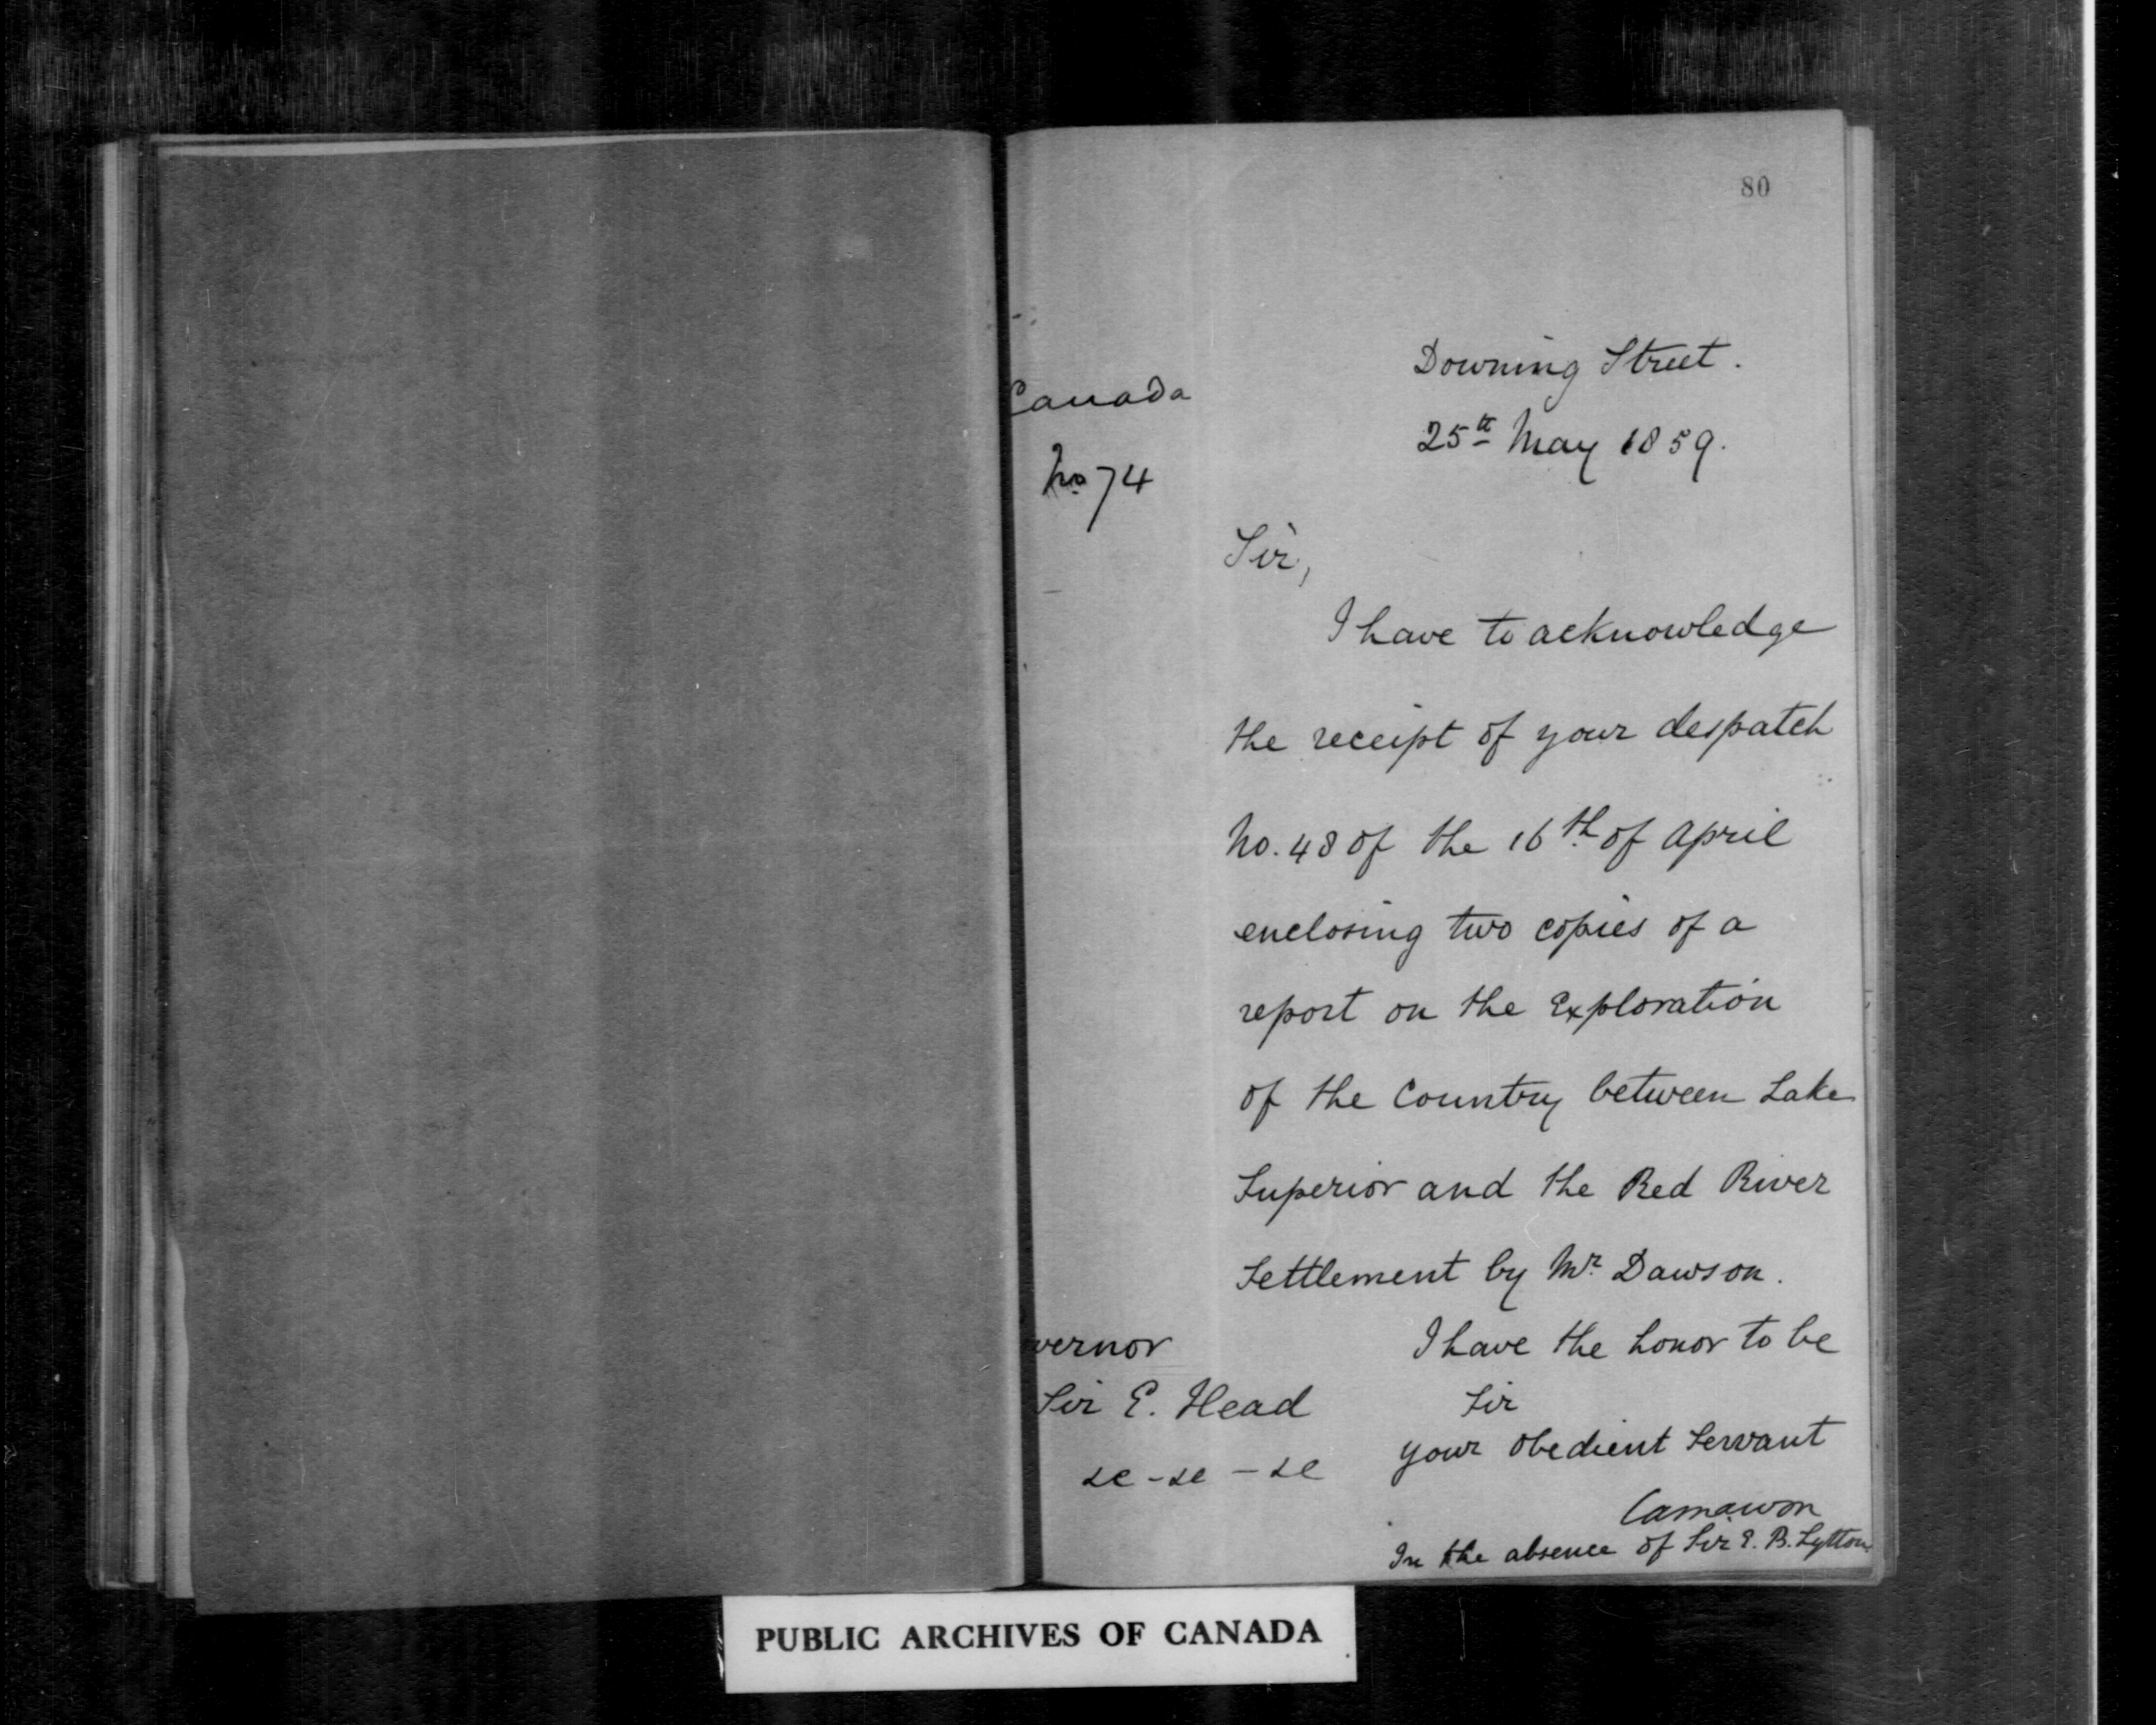 80
Downing Street.
Canada
25th May 1859.
No 74
Sir,
I have to acknowledge
the receipt of your despatch
No. 48 of the 16th of April
enclosing two copies of a
report on the Exploration
of the Country between Lake
Superior and the Red River
Settlement by Mr Dawson.
vernor
I have the honor to be
Sir E. Head
Sir
your obedient Servant
&c - &c - &c
Carnarvon
In the absence of Sir E. B. Lytton.
PUBLIC ARCHIVES OF CANADA